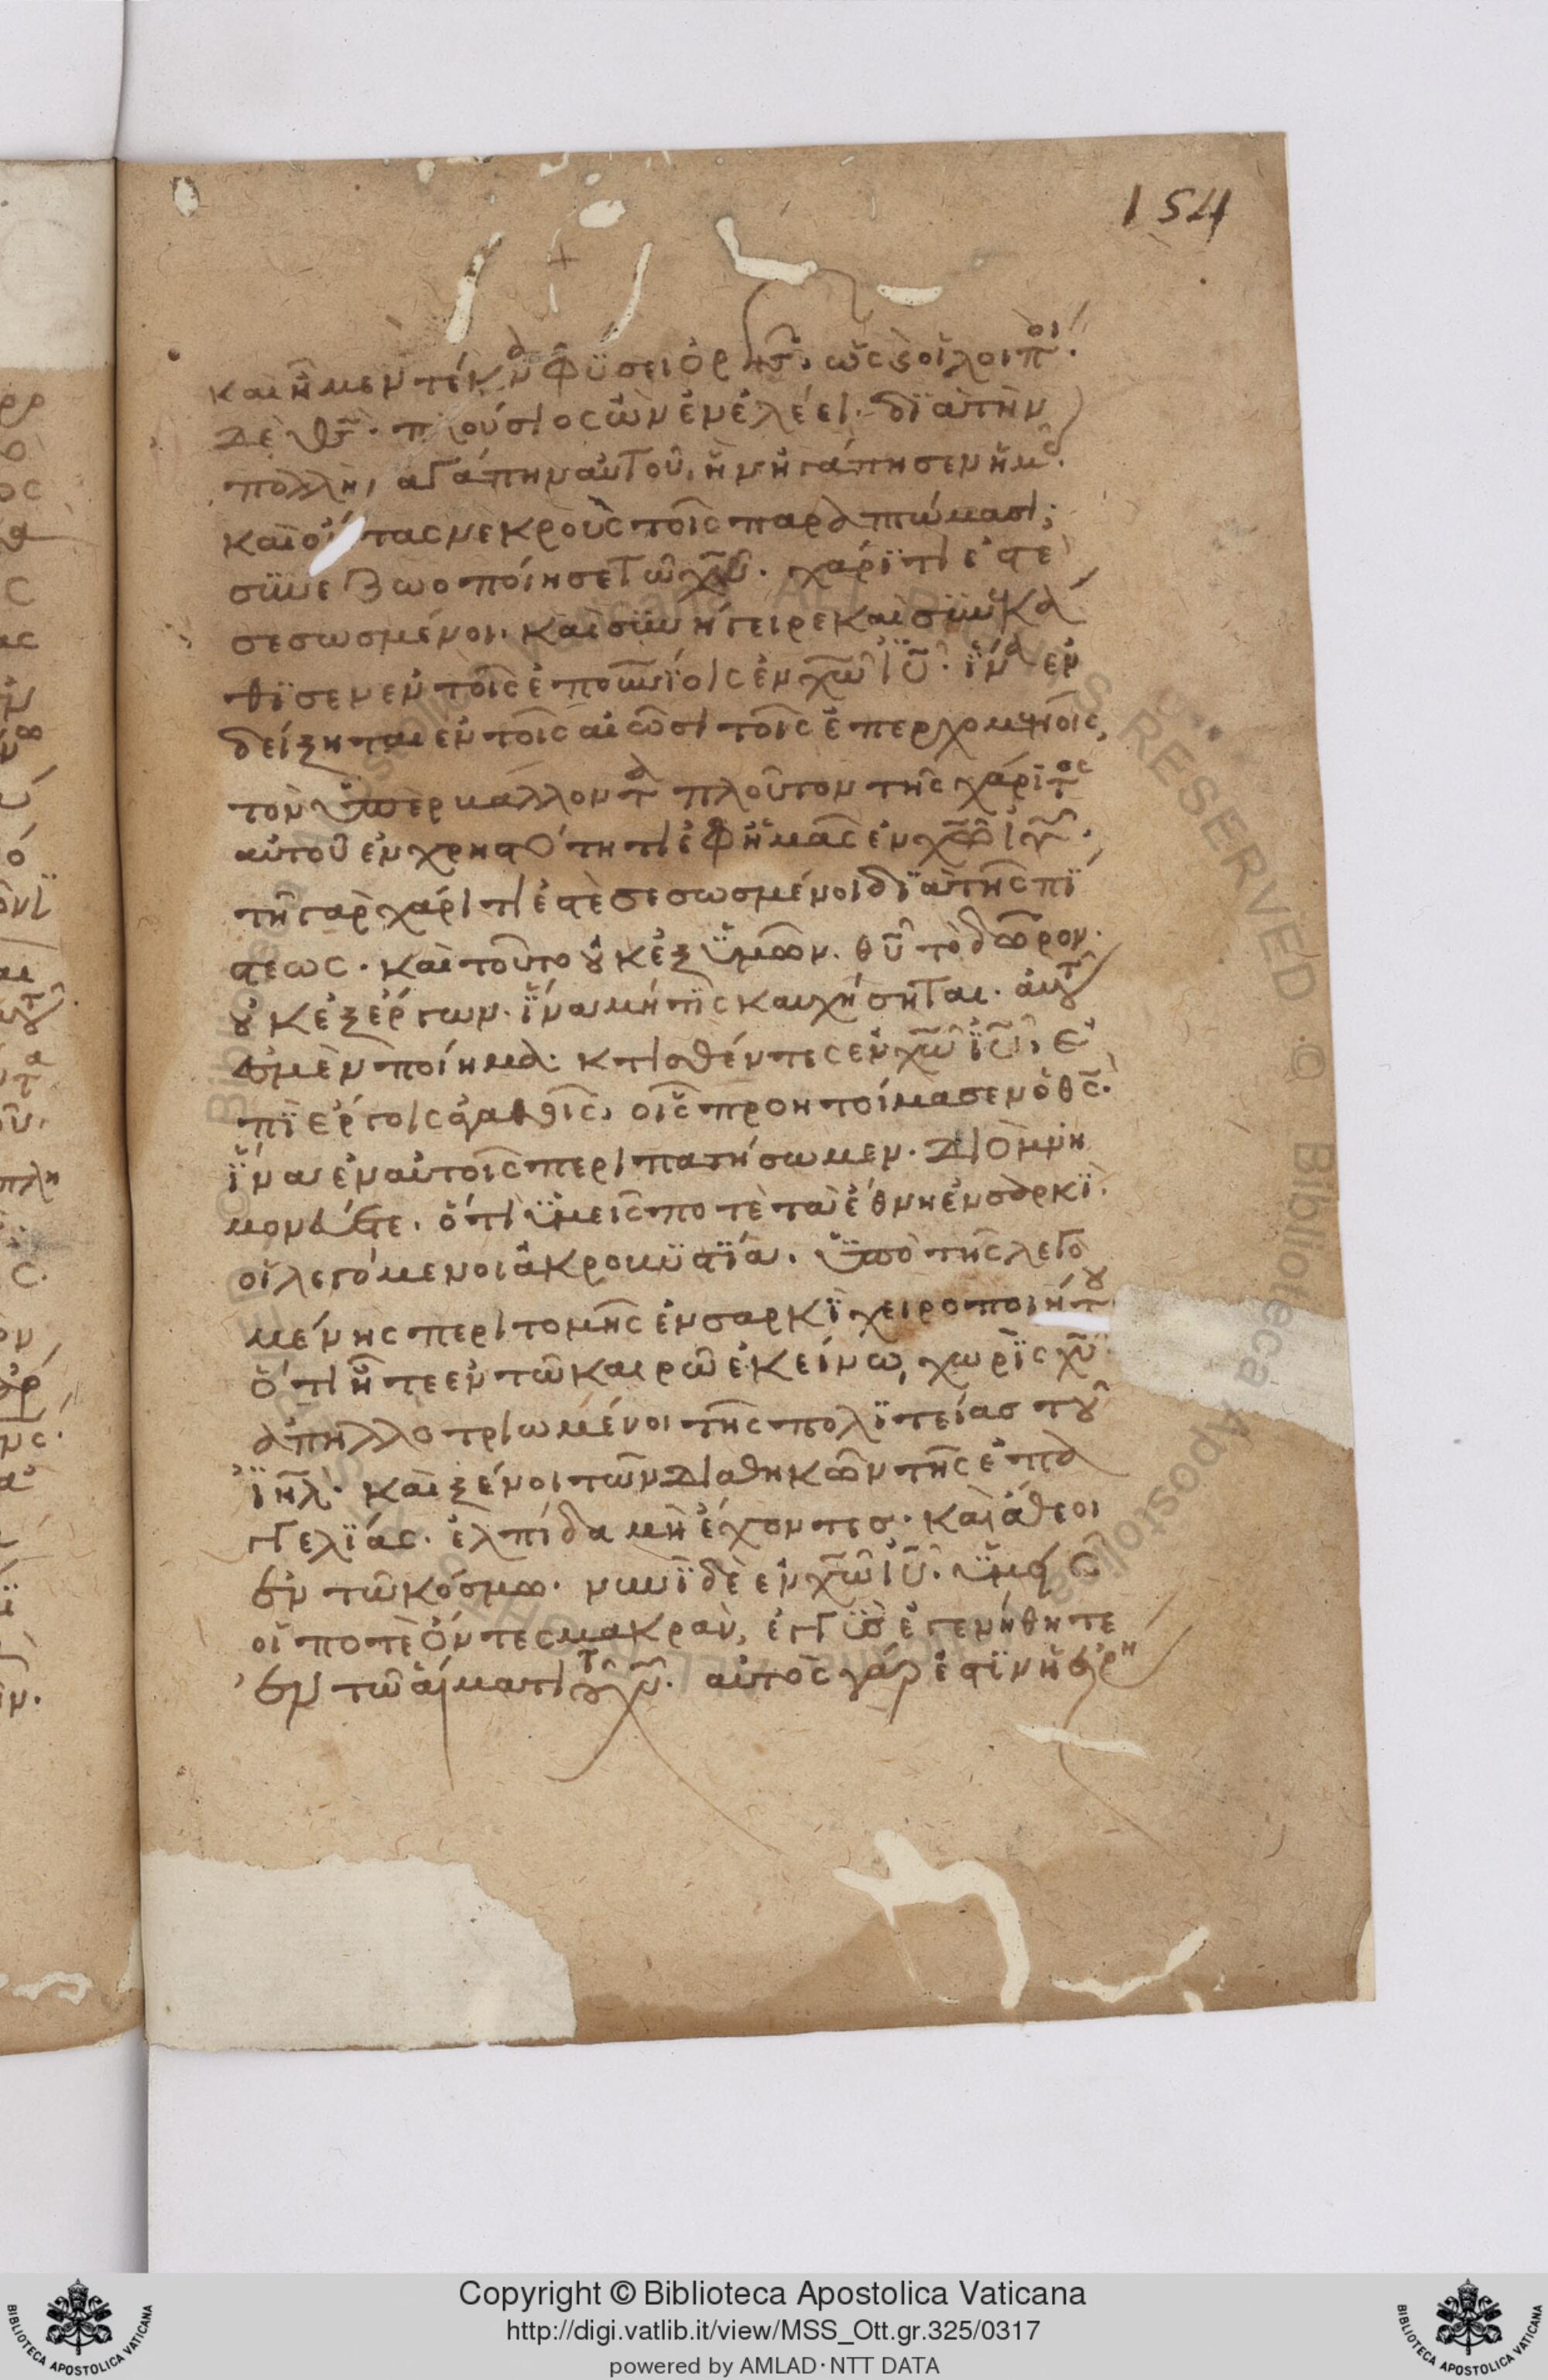 154
καὶ ἦμεν τέκνα φύσει ὀργῆς. ὡς καὶ οἱ λοιποί.
δὲ θς. πλούσιος ὢν ἐν ἐλέει. διὰ τὴν
πολλὴν ἀγάπην αὐτοῦ, ἣν ἠγάπησεν ἡμᾶς.
καὶ ὄντας νεκροὺς τοῖς παραπτώμασι,
συνεζωοποίησε τῷ χῦ. χάριτι ἐστε
σεσωσμένοι. καὶ συνήγειρε καὶ συνεκά
θισεν ἐν τοῖς ἐπουνίοις ἐν χῶ ἰῦ. ἵνα ἐν
δείξηται ἐν τοῖς αἰῶσι τοῖς ἐπερχομένοις,
τὸν ὑπερβάλλοντα πλοῦτον τῆς χάριτος
αὐτοῦ ἐν χρηστότητι ἐφ ἡμᾶς ἐν χῶ ἰῦ.
τῇ γὰρ χάριτι ἐστὲ σεσωσμένοι διὰ τῆς πί
στεως. καὶ τοῦτο οὐκ ἐξ ὑμῶν. θῦ τὸ δῶρον.
οὐκ ἐξ ἔργων. ἵνα μή τις καυχήσηται. αὐτοῦ
ἐσμὲν ποίημα. κτισθέντες ἐν χῶ ἰῦ, ἐ
πὶ ἔργοις ἀγαθοῖς, οἷς προητοίμασεν ὁ θς.
ἵνα ἐν αὐτοῖς περιπατήσωμεν. διὸ μνη
μονεύετε. ὅτι ὑμεῖς ποτὲ τὰ ἔθνη ἐν σαρκί.
οἱ λεγόμενοι ἀκροβυστία. ὑπὸ τῆς λεγο
μένης περιτομῆς ἐν σαρκὶ χειροποιήτου
ὅτι ἦτε ἐν τῷ καιρῷ ἐκείνω, χωρὶς χῦ
ἀπηλλοτριωμένοι τῆς πολιτείας τοῦ
ἰηλ. καὶ ξένοι τῶν διαθηκῶν τῆς ἐπα
γγελίας. ἐλπίδα μὴ ἔχοντες. καὶ ἄθεοι
ἐν τῷ κόσμω. νυνὶ δὲ ἐν χῶ ἰῦ. ὑμεῖς
οἵ ποτὲ ὄντες μακρὰν, ἐγγὺς ἐγενήθητε
ἐν τῷ αἵματι τοῦ χῦ. αὐτὸς γάρ ἐστιν ἡ εἰρη
Copyright © Biblioteca Apostolica Vaticana
http://digi.vatlib.it/view/MSS_Ott.gr.325/0317
powered by AMLAD·NTT DATA